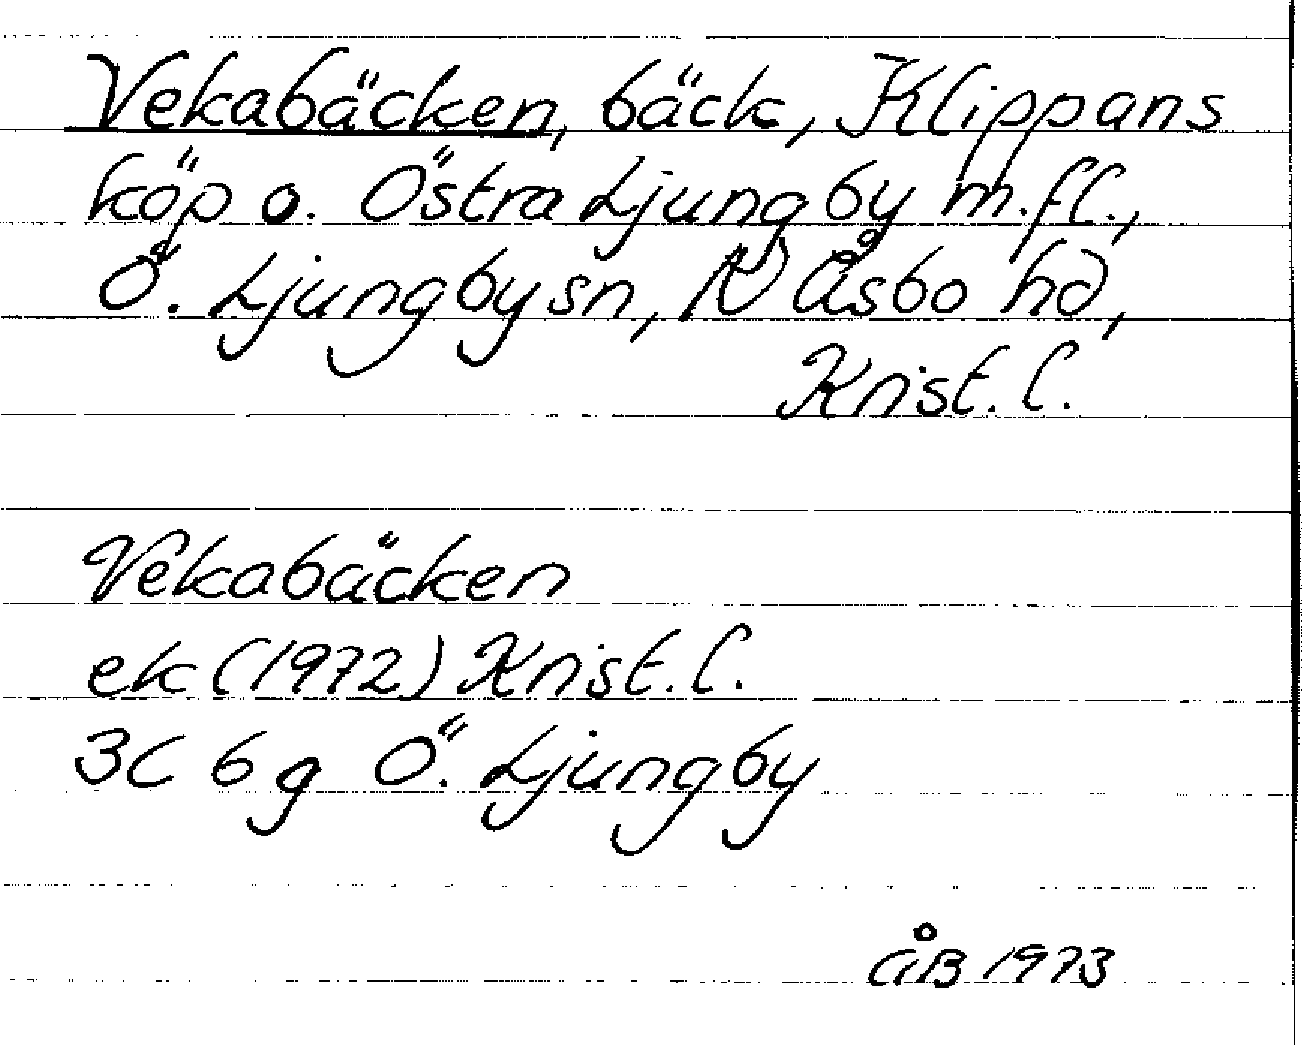 Vekabäcken, bäck, Klippans
köp o. Östra Ljungby m.fl.,
Ö. Ljungby sn, N Åsbo hd,
Krist. l.
Vekabäcken
ek (1972) Krist. l.
3C 6g Ö. Ljungby
ÅB 1973